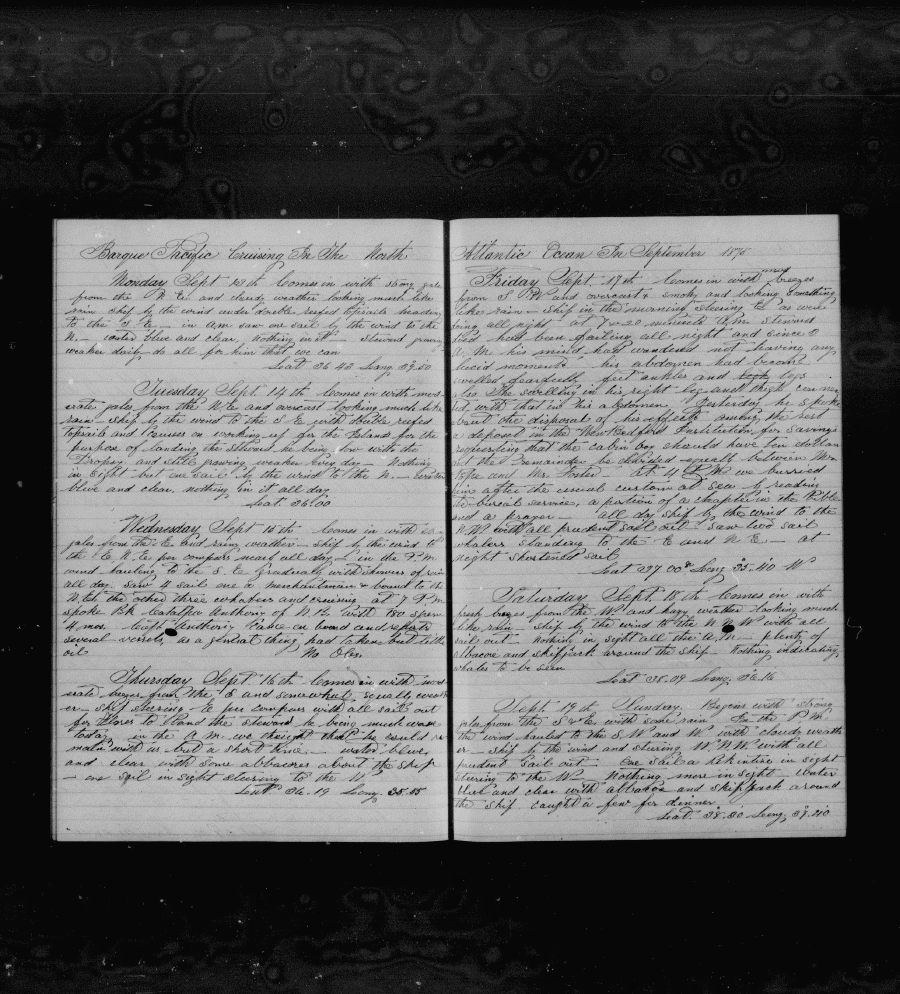 Barque Pacific Cruising In The North
Monday Sept 13th Comes in with strong gales
from the N E. and cloudy weather looking much like
rain ship by the wind under double reefed topsails heading
to the S E. — in A.M saw one sail by the wind to the
N. — water blue and clear, nothing in it — steward growing
weaker daily do all for him that we can
Lat 36 43 Long 37.50
Tuesday Sept. 14th Comes in with mod-
erate gales from the N.E. and overcast looking much like
rain — ship by the wind to the S E with double reefed
topsails and courses on working up for the Islands for the
purpose of landing the steward he being low with the
Dropsy and still growing weaker every day — Nothing
in sight but one sail by the wind to the N. — water
blue and clear, nothing in it all day
Lat. 36.00
Wednesday Sept 15th Comes in with
gales from the E. and rainy weather — ship by the wind to
the E. N E per compass nearly all day — in the P.M
wind hauling to the S. E gradually with showers of rain
all day. saw 4 sail one a merchantman bound to the
W. the other three whalers and cruising at 7 P.M
spoke Bk Catalpa Anthony of N. B. with 180 sperm
4 mos. Capt Anthony came on board and reports
several vessels, as a general thing had taken but little
oil No Obs.
Thursday Sept. 16th Comes in with mod-
erate breezes from the S and somewhat squally weath-
er — ship steering E per compass with all sail out
for Flores to land the steward he being much worse
today in the A M. we thought that he could re-
main with us but a short time. — water blue,
and clear with some albacores about the ship
— one sail in sight steering to the W
Lat 36.19 Long. 35.55
Atlantic Ocean In September 1875
Friday Sept. 17th Comes in with mod breezes
from S W and overcast & smoky and looking something
like rain — ship in the morning steering E as were
doing all night at 7 — 20 minutes A.M. Steward
died had been failing all night and since 3
A. M his mind had wandered not having any
lucid moments his abdomen had become
swelled fearfully feet ankles and legs
also the swelling in his right leg and thigh connec-
ted with that in his abdomen, Yesterday he spoke
about the disposal of his effects among the rest
a deposit in the New Bedford Institution for Savings
requesting that the cabin boy should have ten dollars
and the remainder be divided equally between Mr
and Mr. Foster At 4 P.M we burried
him after the usual custom at sea by reading
the burial service, a portion of a chapter in the Bible
and a prayer — all day ship by the wind to the
N. W. with all prudent sail out saw two sail
whalers standing to the E and N E. — at
night shortened sail
Lat 37 00 Long 35.40 W
Saturday Sept. 18th Comes in with
fresh breezes from the W. and hazy weather looking much
like rain — ship by the wind to the N N W with all
sail out Nothing in sight all the A.M — plenty of
albacore and skipjack around the ship — Nothing indicating
whales to be seen
Lat 38.09 Long. 36.16
Sept. 19th Sunday. Begins with strong
gales from the S & E. with some rain In the P.M.
the wind hauled to the S.W and W with cloudy weath-
er — ship by the wind and steering W. N.W. with all
prudent sail out — One sail a Bkentine in sight
steering to the W — Nothing more in sight Water
blue and clear with albacore and skipjack around
the ship caught a few for dinner
Lat. 38.30 Long. 37.40